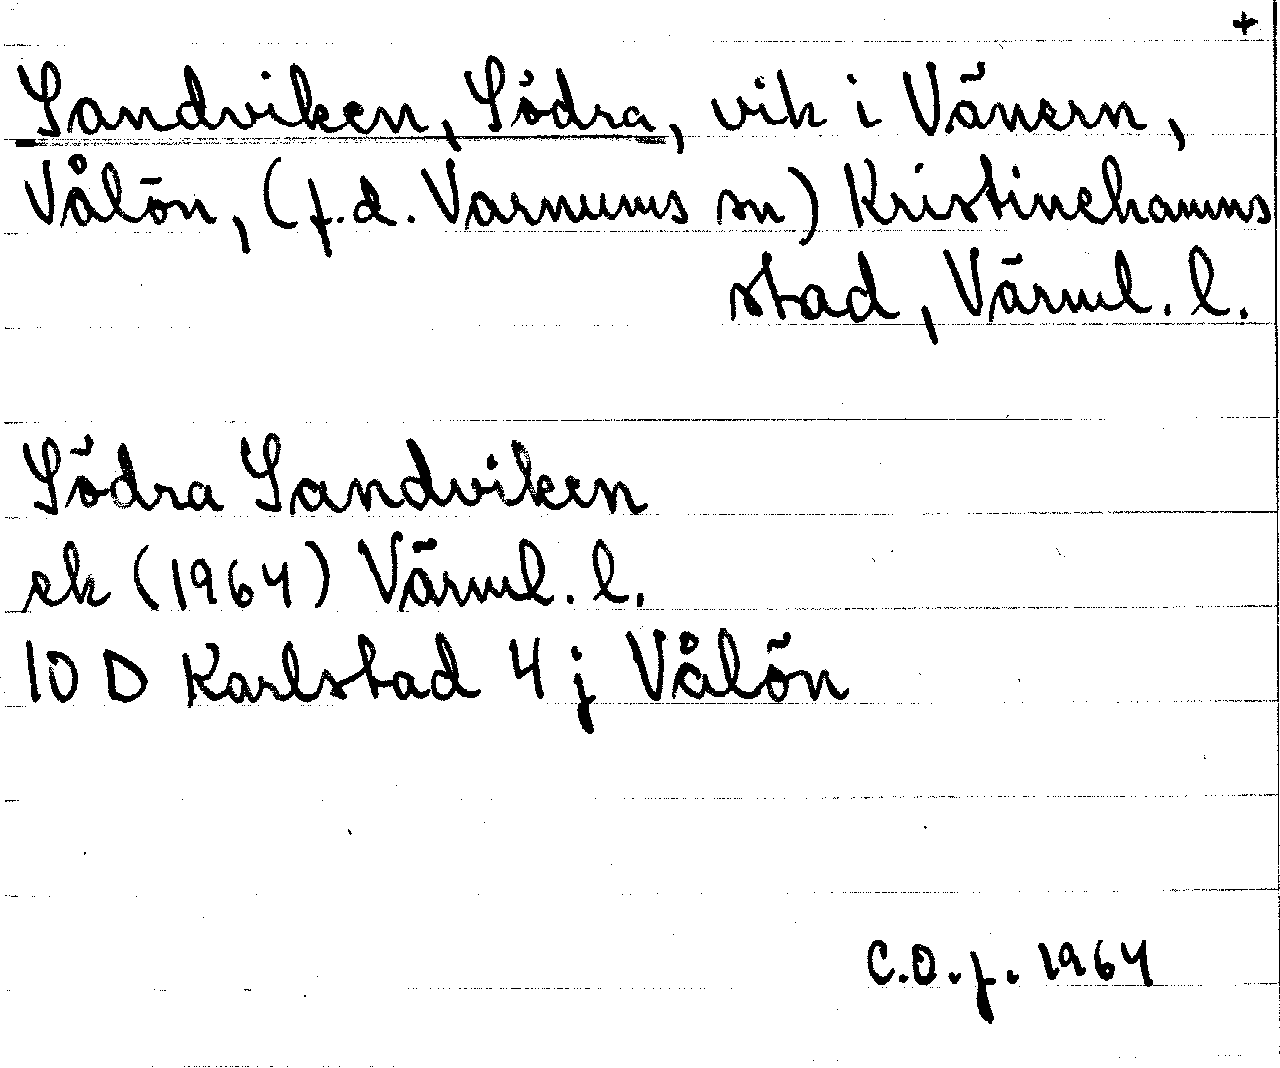 +
Sandviken, Södra, vik i Vänern,
Vålön, (f.d. Varnums sn) Kristinehamns
stad, Värml. l.
Södra Sandviken
ek (1964) Värml. l.
10 D Karlstad 4 j Vålön
C.O.f. 1964